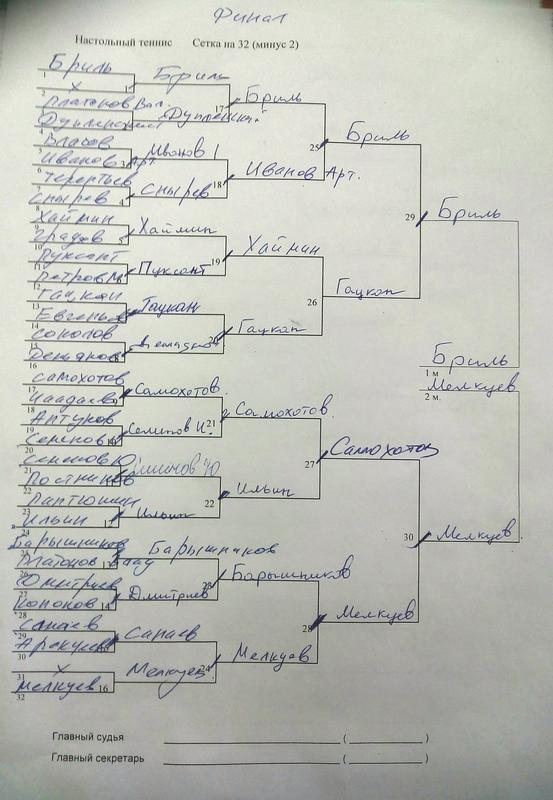 Финал
Настольный теннис Сетка на 32 (минус 2)
Бриль
1
х
2
Платонов Вал.
Власов
Иванов Арт.
6
Терентьев
7
Снырев
8
Хаймин
9
10
Пуксант
11
Петров М
12
Гацкан
13
14
Соколов
15
16
Самохотов
Чаадаев
18
Аптуков
19
20
Семенов Ю
21
Постников
22
Лаптюшкин
23
Ильин
24
Барышников
Платонов Влад
26
Дмитриев
27
Кононов
28
Сапаев
29
30
х
31
Мелкуев
32
Бриль
1
Дуплинский
Иванов 1
3
Снырев
4
Хаймин
5
Пуксант
Гацкан
Самохотов
Семенов И.
Ильин
12
Барышников
13
Дмитриев
14
Сапаев
Мелкуев
16
Бриль
17
Иванов Арт.
18
Хаймин
19
Гацкан
20
Самохотов
21
Ильин
22
Барышников
23
Мелкуев
24
Бриль
25
Гацкан
26
Самохотов
27
Мелкуев
28
Бриль
29
Мелкуев
30
Бриль
1 м
Мелкуев
2 м.
Главный судья ( )
Главный секретарь ( )